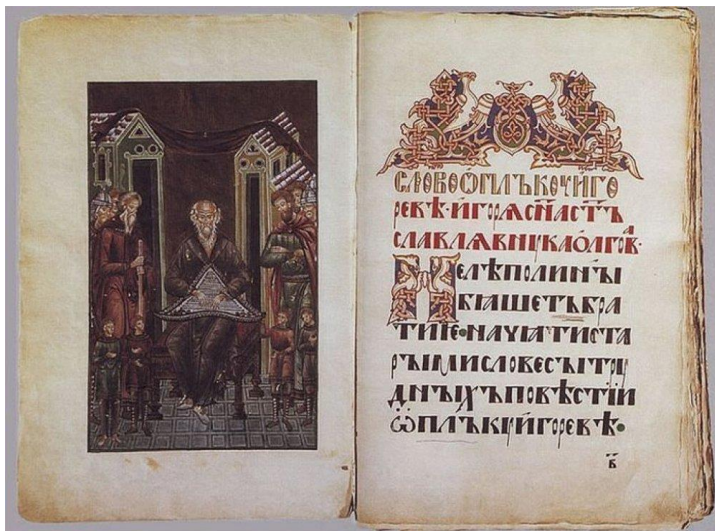 СЛОВО Ѿ ПЛЪКѸ ИГО
РЕВѢ· ИГОРѦ СН҃А СТ҃Ъ
СЛАВЛѦ ВНѸКА ОЛГОВА·
НЕ ЛѢПО ЛИ НЫ
БѦШЕТЪ БРА
ТИЕ· НАЧѦТИ СТА
РЫМИ СЛОВЕСЫ ТРѸ
ДНЫХЪ ПОВѢСТІИ
Ѿ ПЛЪКѸ ИГОРЕВѢ·
в҃